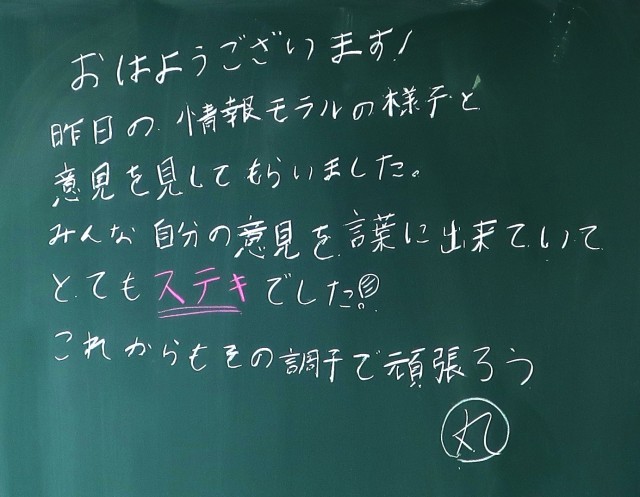 おはようございます!
昨日の情報モラルの様子と
意見を見してもらいました。
みんな自分の意見を言葉に出来ていて
とてもステキでした!!
これからもその調子で頑張ろう
丸